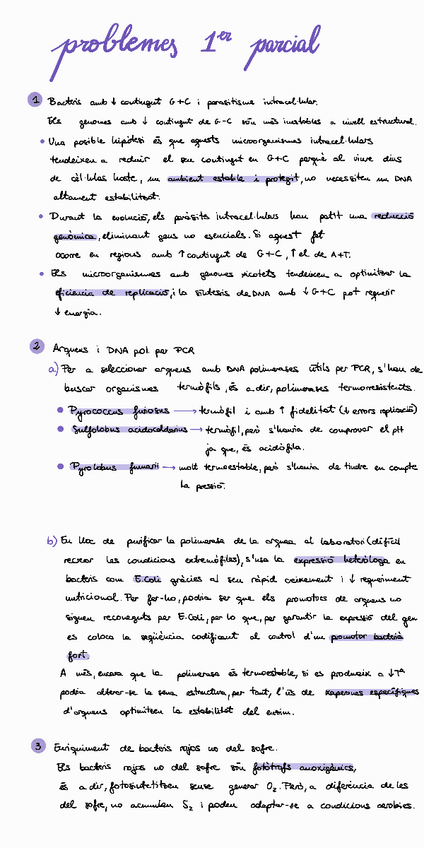 problemes 1er parcial
1 Bacteris amb ↓ contingut G+C i parasitisme intracel·lular.
Els genomes amb ↓ contingut de G-C són més inestables a nivell estructural.
• Una possible hipòtesi és que aquests microorganismes intracel·lulars
tendeixen a reduir el seu contingut en G+C perquè al viure dins
de cèl·lules hoste, un ambient estable i protegit, no necessiten un DNA
altament estabilitzat.
• Durant la evolució, els paràsits intracel·lulars han patit una reducció
genòmica, eliminant gens no esencials. Si aquest fet
ocorre en regions amb ↑ contingut de G+C, ↑ el de A+T.
• Els microorganismes amb genomes xicotets tendeixen a optimitzar la
eficiencia de replicació, i la síntesis de DNA amb ↓ G+C pot requerir
↓ energia.
2 Arqueus i DNA pol. per PCR
a) Per a seleccionar arqueus amb DNA polimerases útils per PCR, s'han de
buscar organismes termòfils, és a dir, polimerases termoresistents.
• Pyrococcus furiosus → termòfil i amb ↑ fidelitat (↓ errors replicació)
• Sulfolobus acidocaldarius → termòfil, però s'hauria de comprovar el pH
ja que, és acidòfila.
• Pyrolobus fumarii → molt termoestable, però s'hauria de tindre en compte
la pressió.
b) En lloc de purificar la polimerasa de la arquea al laboratori (difícil
recrear les condicions extremòfiles), s'usa la expressió heteròloga en
bacteris com E.Coli gràcies al seu ràpid creixement i ↓ requeriment
nutricional. Per fer-ho, podria ser que els promotors de arqueus no
siguen reconeguts per E.Coli, per lo que, per garantir la expressió del gen
es coloca la seqüència codificant al control d'un promotor bacterià
fort.
A més, encara que la polimerasa és termoestable, si es produeix a ↓Tª
podria alterar-se la seua estructura, per tant, l'ús de xaperones específiques
d'arqueus optimitzen la estabilitat del enzim.
3 Enriquiment de bacteris rojos no del sofre.
Els bacteris rojos no del sofre són fotòtrofs anoxigènics,
és a dir, fotosintetitzen sense generar O₂. Però, a diferència de les
del sofre, no acumulen S₂ i poden adaptar-se a condicions aerobies.